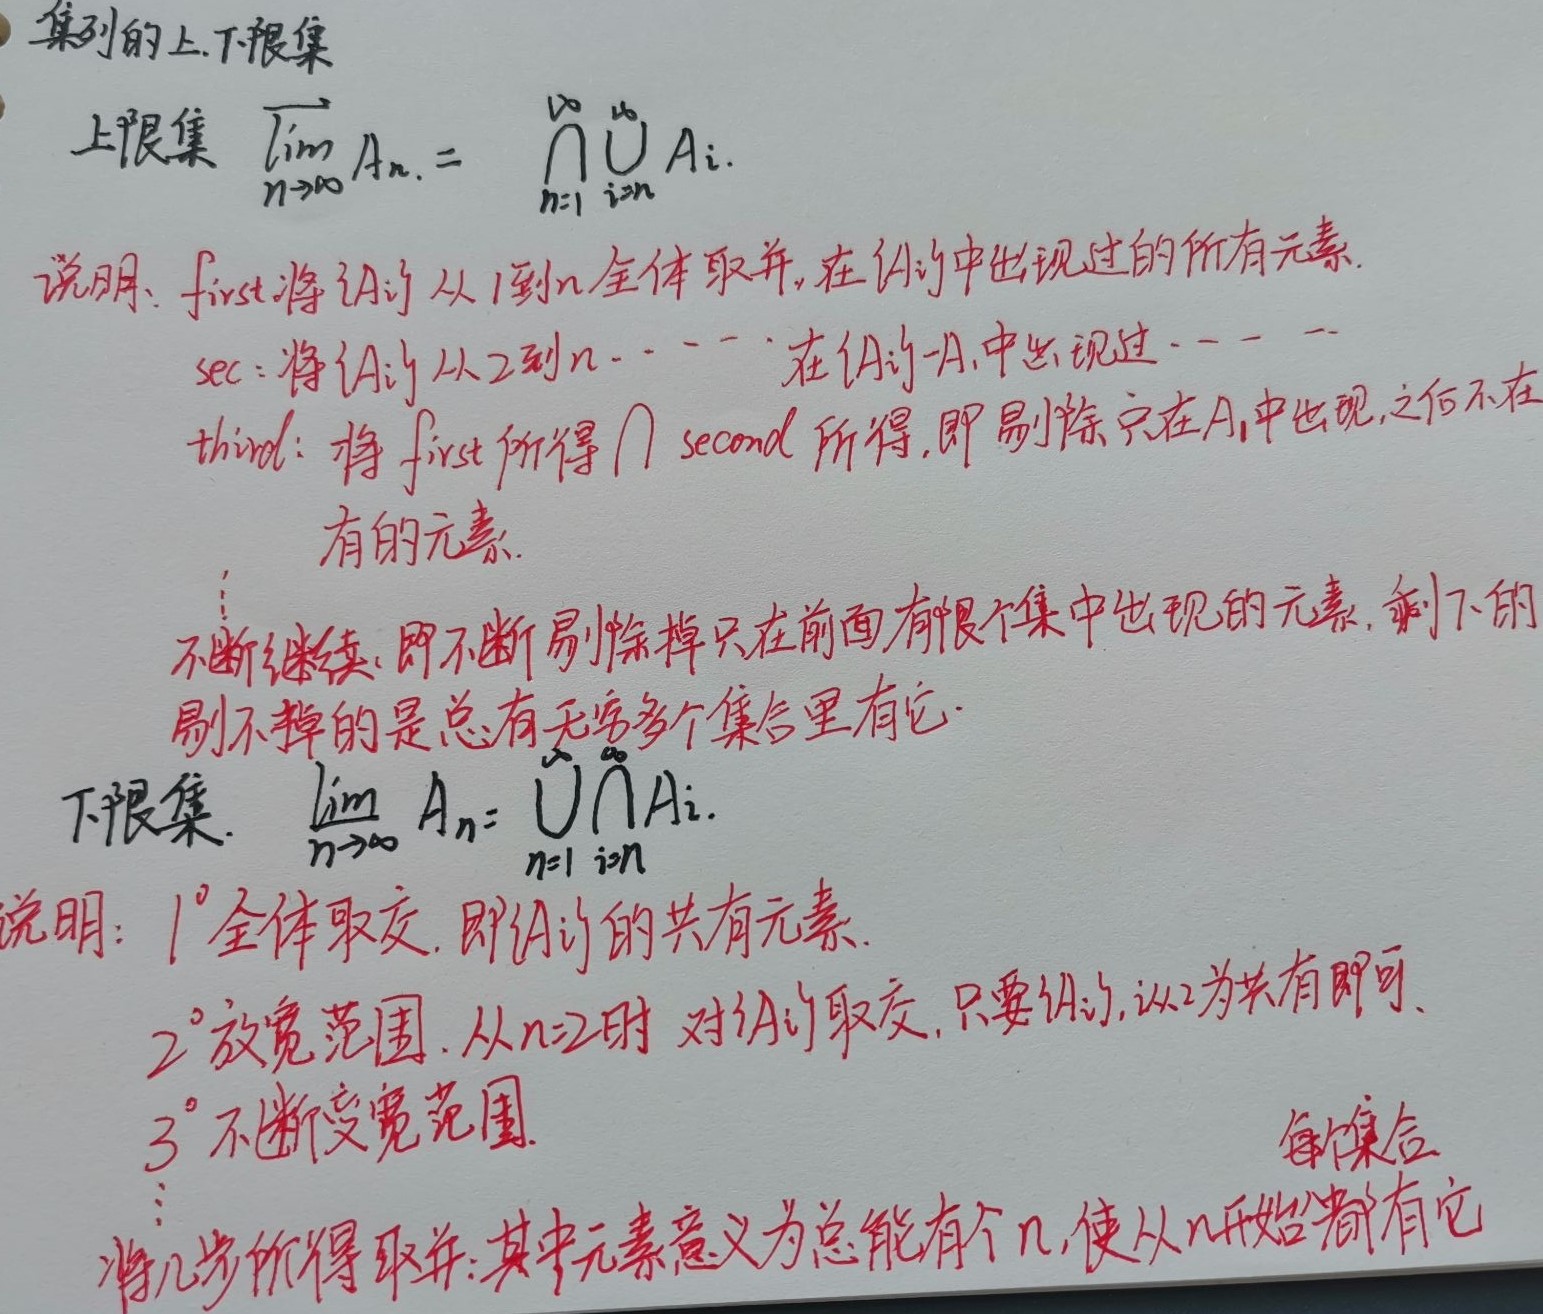 集列的上.下限集
上限集 $\overrightarrow{\lim\limits_{n\to\infty}} A_n. = \bigcap\limits_{n=1}^{\infty} \bigcup\limits_{i=n}^{\infty} A_i.$
说明、first:将{Ai}从1到n全体取并,在{Ai}中出现过的所有元素.
sec:将{Ai}从2到n······在{Ai}-A₁中出现过·----
third: 将first所得∩second所得,即剔除只在A₁中出现,之后不在
有的元素.
⋮
不断继续,即不断剔除掉只在前面有限个集中出现的元素,剩下的
剔不掉的是总有无穷多个集合里有它.
下限集. $\underline{\lim}\limits_{n\to\infty} A_n = \bigcup\limits_{n=1}^{\infty} \bigcap\limits_{i=n}^{\infty} A_i.$
说明: 1°全体取交.即{Ai}的共有元素.
2°放宽范围.从n=2时 对{Ai}取交,只要{Ai},i从2为共有即可、
3°不断变宽范围.
⋮
每个集合
将几步所得取并:其中元素意义为总能有个n,使从n开始都有它